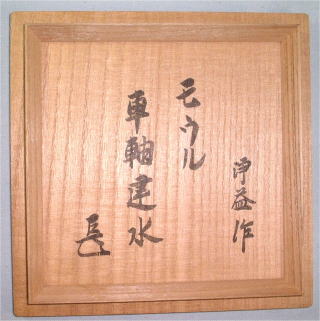 浄益作
モウル
車軸建水